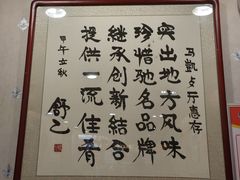 马凯文厅惠存
突出地方风味
珍惜驰名品牌
继承创新结合
提供一流佳肴
甲午立秋
舒乙